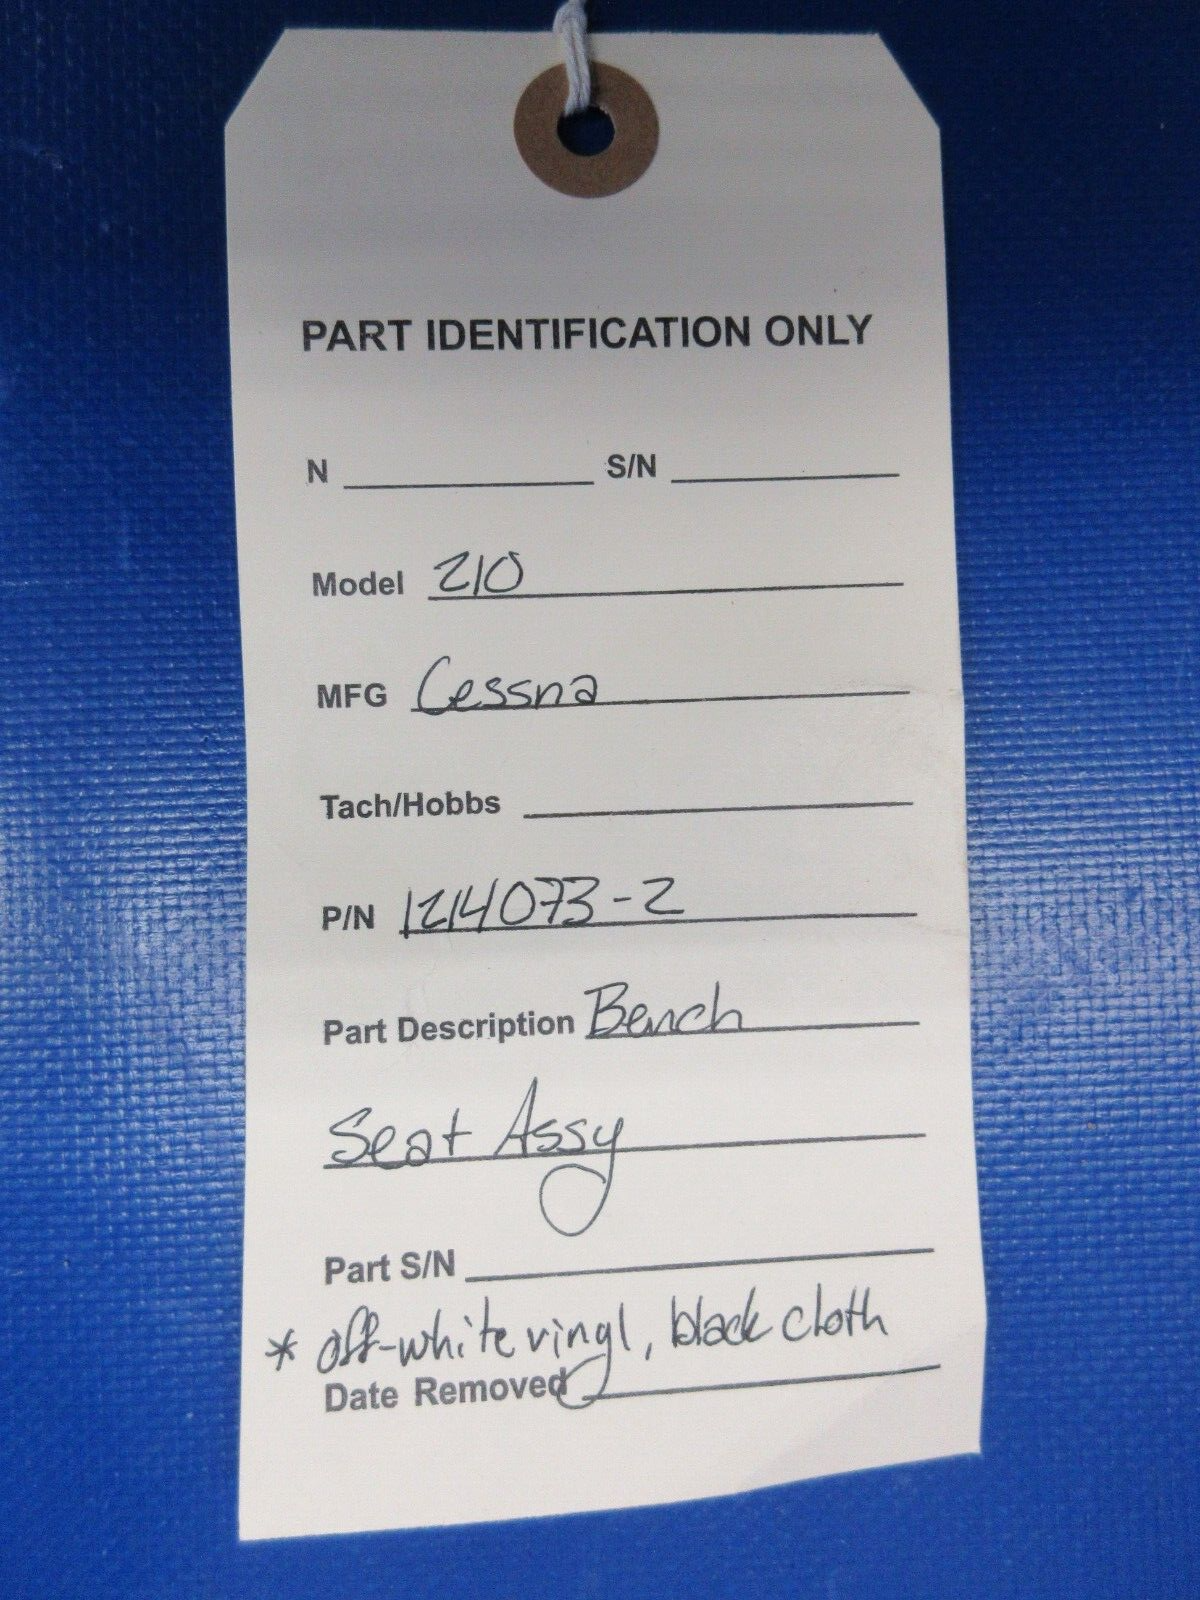 PART IDENTIFICATION ONLY
N S/N
Model 210
MFG Cessna
Tach/Hobbs
P/N 1214073-2
Part Description Bench
Seat Assy
Part S/N
* off-white vinyl, black cloth
Date Removed